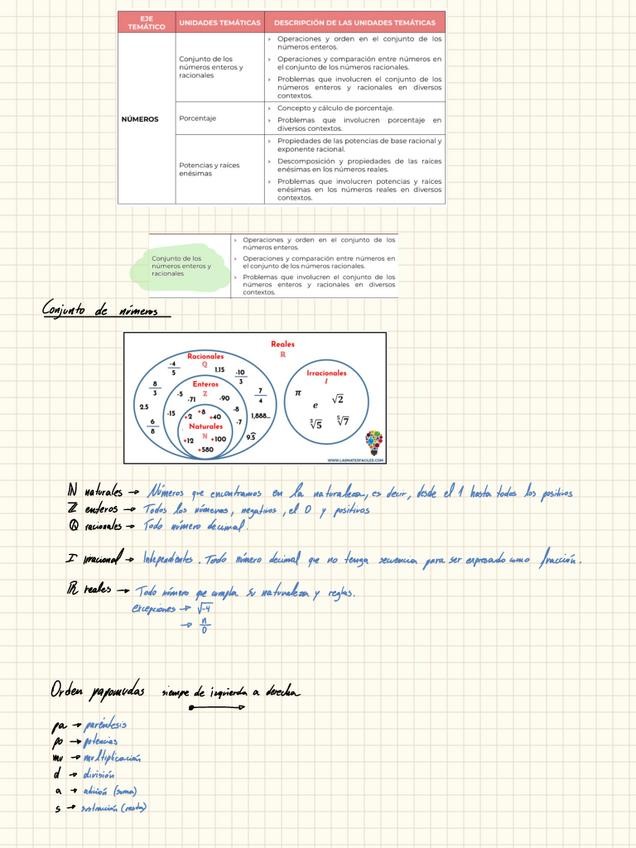 EJE TEMÁTICO UNIDADES TEMÁTICAS DESCRIPCIÓN DE LAS UNIDADES TEMÁTICAS
NÚMEROS
Conjunto de los
números enteros y
racionales
› Operaciones y orden en el conjunto de los
números enteros.
› Operaciones y comparación entre números en
el conjunto de los números racionales.
› Problemas que involucren el conjunto de los
números enteros y racionales en diversos
contextos.
Porcentaje
› Concepto y cálculo de porcentaje.
› Problemas que involucren porcentaje en
diversos contextos.
Potencias y raíces
enésimas
› Propiedades de las potencias de base racional y
exponente racional.
› Descomposición y propiedades de las raíces
enésimas en los números reales.
› Problemas que involucren potencias y raíces
enésimas en los números reales en diversos
contextos.
Conjunto de los
números enteros y
racionales
› Operaciones y orden en el conjunto de los
números enteros.
› Operaciones y comparación entre números en
el conjunto de los números racionales.
› Problemas que involucren el conjunto de los
números enteros y racionales en diversos
contextos.
Conjunto de números
Reales
ℝ
Racionales
ℚ
-4/5 1.15 -10/3
8/3 7/4
2.5 6/8 1,888... 9.5
Enteros
ℤ
-5 -71 -90 -15 -8 -7
+2 +8 +40
Naturales
ℕ
+12 +100
+580
Irracionales
I
π e √2
∛5 ⁵√7
WWW.LASMATESFACILES.COM
ℕ naturales → Números que encontramos en la naturaleza, es decir, desde el 1 hasta todos los positivos
ℤ enteros → Todos los números, negativos, el 0 y positivos
ℚ racionales → Todo número decimal.
I irracional → Independientes. Todo número decimal que no tenga secuencia para ser expresado como fracción.
ℝ reales → Todo número que cumpla su naturaleza y reglas.
excepciones → √-4
→ n/0
Orden papomudas siempre de izquierda a derecha
pa → paréntesis
po → potencias
mu → multiplicación
d → división
a → adición (suma)
s → sustracción (resta)